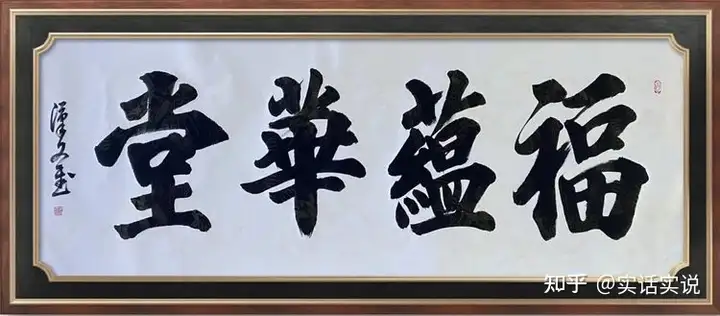 福蘊華堂
漢文書
知乎 @实话实说